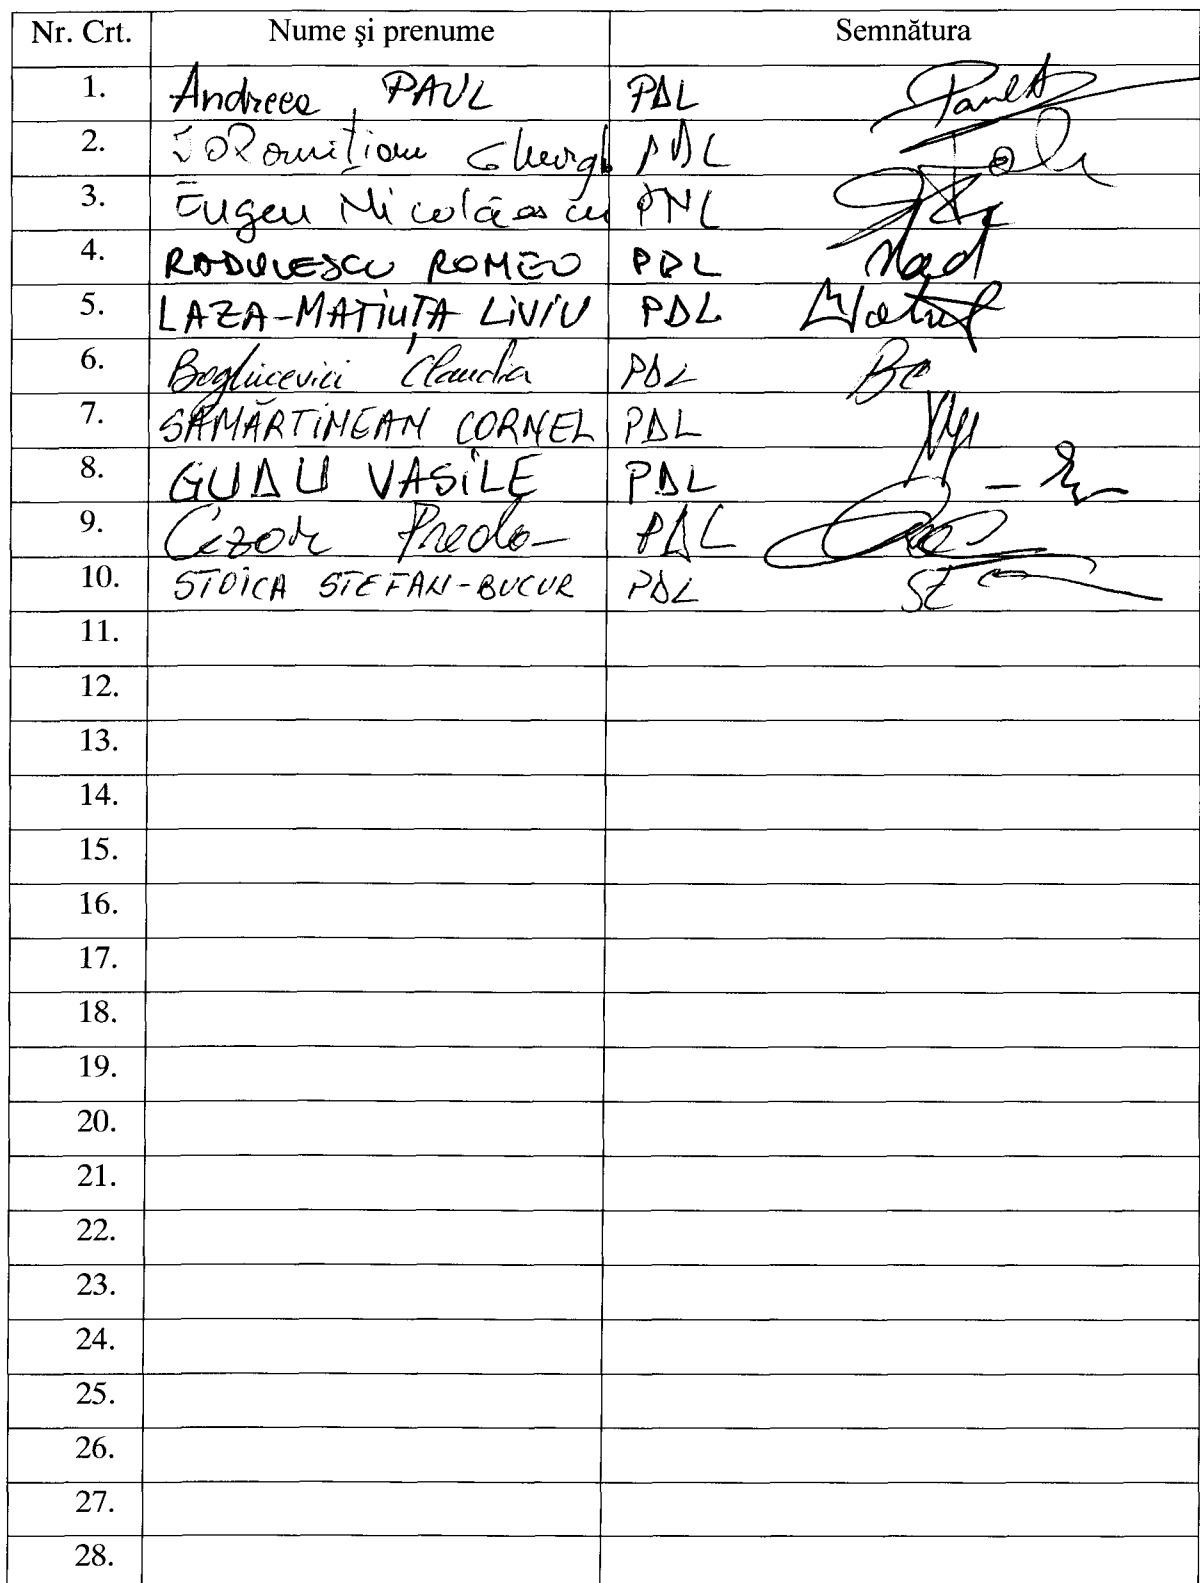 Nr. Crt. Nume şi prenume Semnătura
1. Andreea PAUL PDL
2. Gheorgh PDL
3. Eugen Nicolăescu PNL
4. RADULESCU ROMEO PDL
5. LAZA-MATIUȚA LIVIU PDL
6. Boghicevici Claudia PDL
7. SĂMĂRTINEAN CORNEL PDL
8. GUDU VASILE PDL
9. Cezar Preda PDL
10. STOICA STEFAN-BUCUR PDL
11.
12.
13.
14.
15.
16.
17.
18.
19.
20.
21.
22.
23.
24.
25.
26.
27.
28.